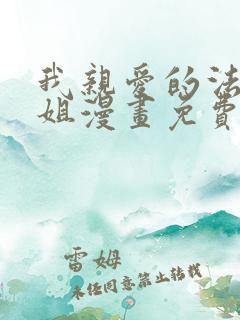 我親愛的法
姐漫畫免費
雷姆
未任同意禁止转载